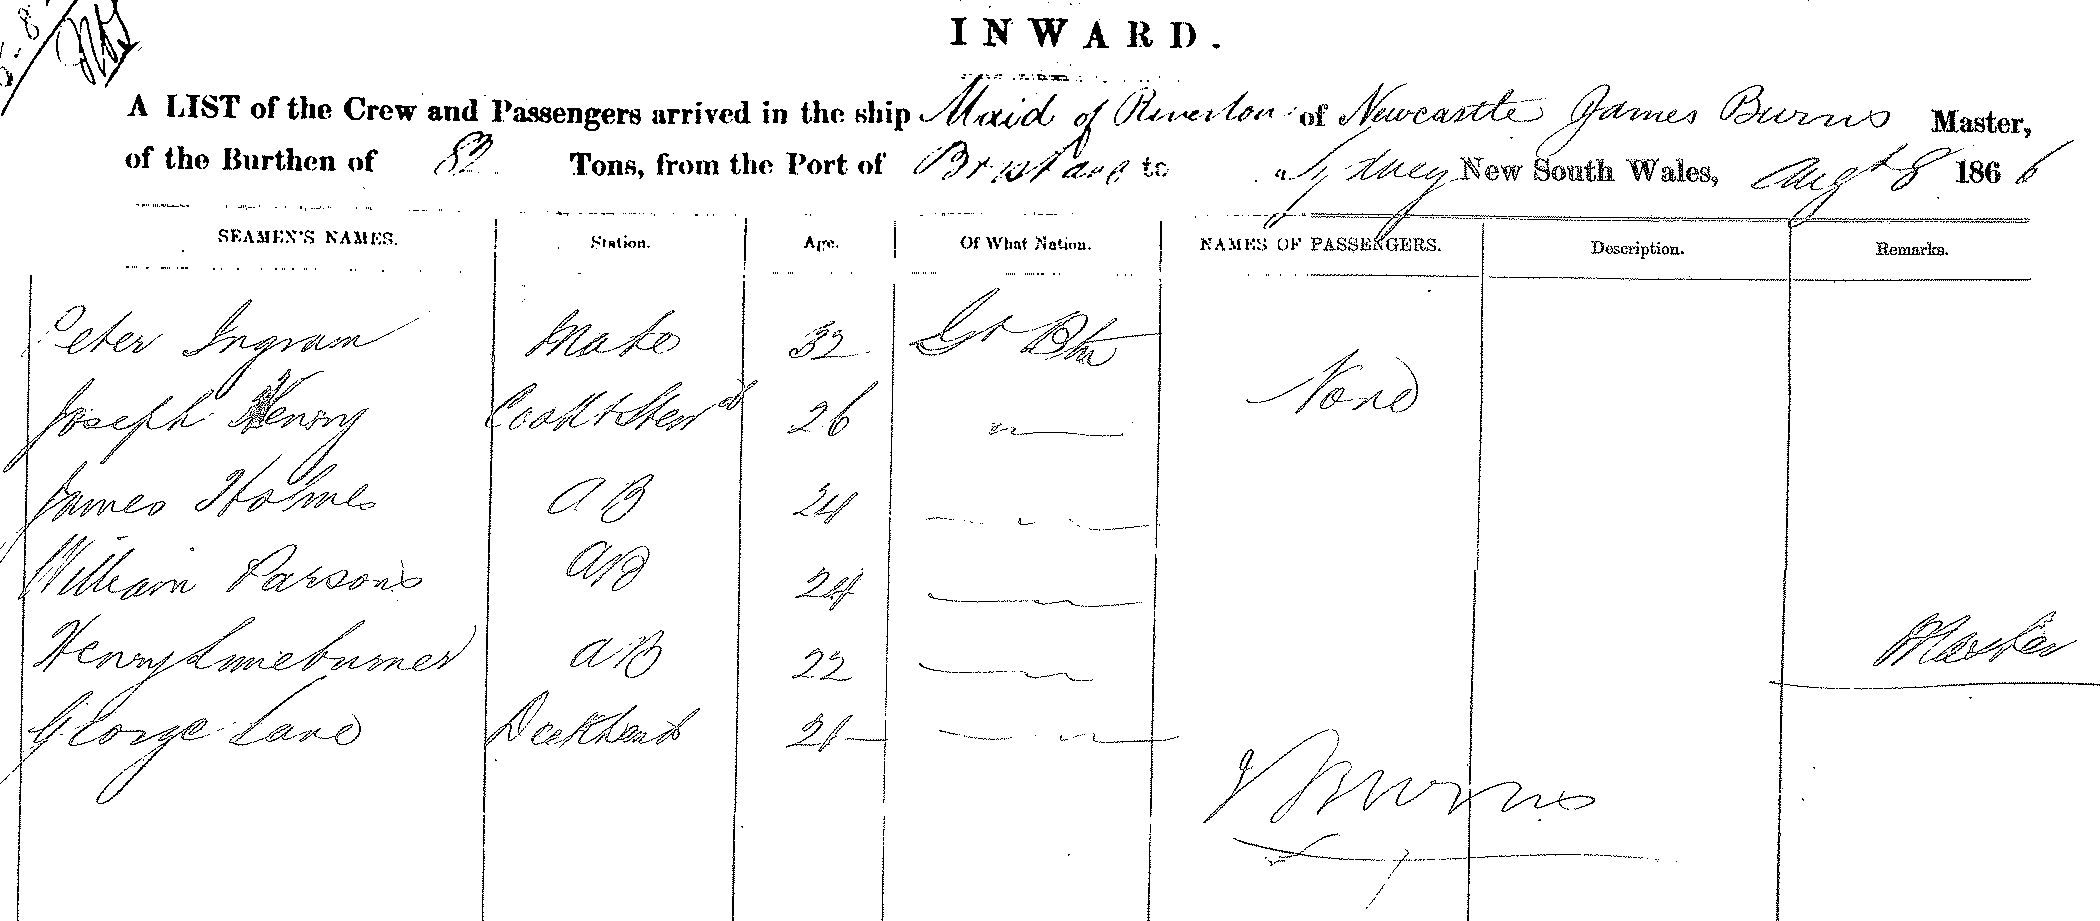 INWARD.
A LIST of the Crew and Passengers arrived in the ship Maid of Riverton of Newcastle James Burns Master,
of the Burthen of 82 Tons, from the Port of Brisbane to Sydney New South Wales, Augt 8 1866
SEAMEN'S NAMES. Station. Age. Of What Nation. NAMES OF PASSENGERS. Description. Remarks.
Peter Ingram Mate 32 Gt Btn
Joseph Henry Cook & Stewd 26 " None
James Holmes AB 24 "
William Parsons AB 24 "
Henry Limeburner AB 22 "
Master
George Lane Deckhand 21 "
J Burns